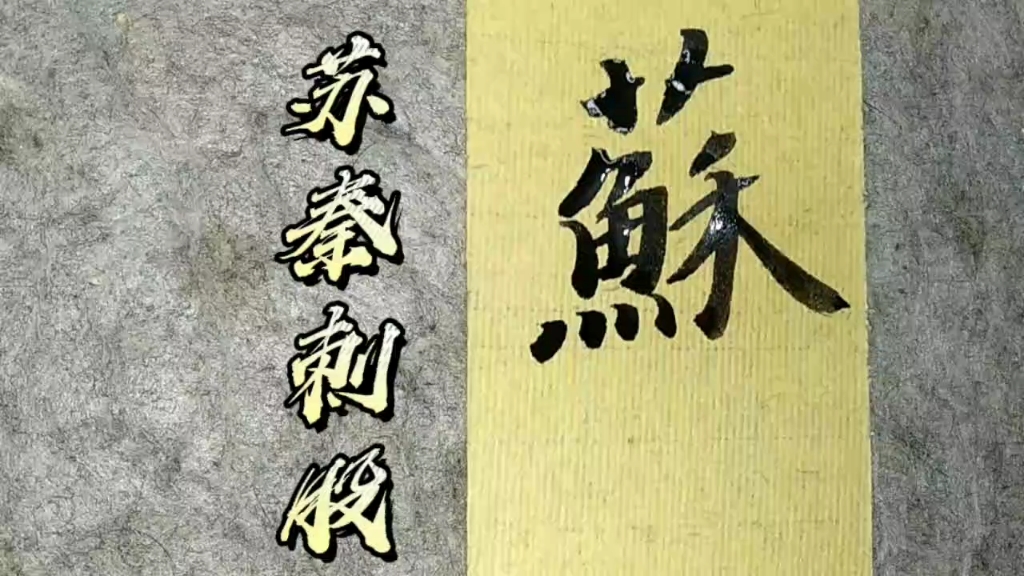 苏秦刺股
蘇